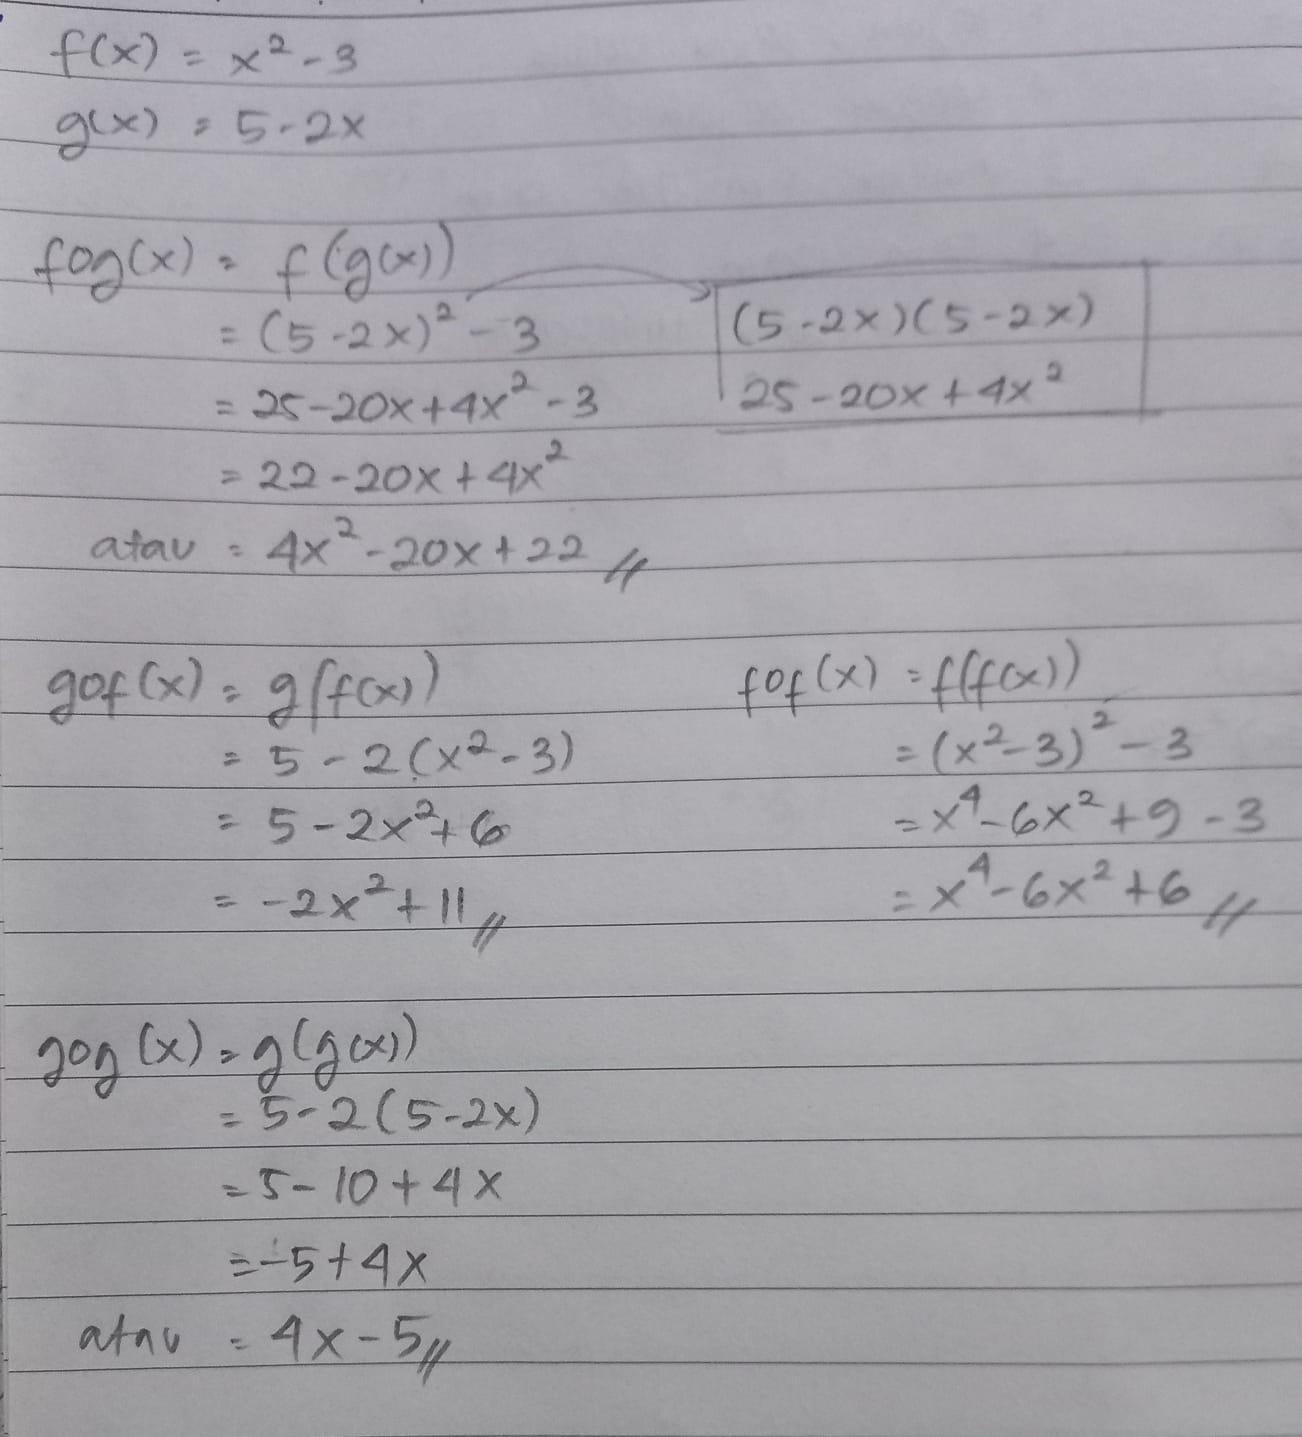 f(x) = x² - 3
g(x) = 5 - 2x
fog(x) = f(g(x))
= (5 - 2x)² - 3
(5 - 2x)(5 - 2x)
= 25 - 20x + 4x² - 3
25 - 20x + 4x²
= 22 - 20x + 4x²
atau = 4x² - 20x + 22 //
gof(x) = g(f(x))
= 5 - 2(x² - 3)
= 5 - 2x² + 6
= -2x² + 11 //
fof(x) = f(f(x))
= (x² - 3)² - 3
= x⁴ - 6x² + 9 - 3
= x⁴ - 6x² + 6 //
gog(x) = g(g(x))
= 5 - 2(5 - 2x)
= 5 - 10 + 4x
= -5 + 4x
atau = 4x - 5 //